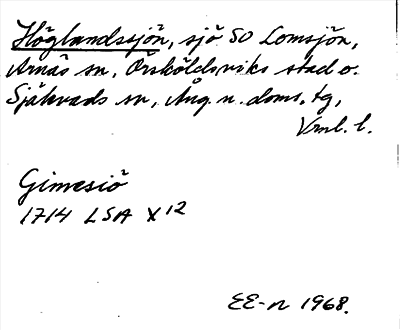 Höglandssjön, sjö SO Lomsjön,
Arnäs sn, Örsköldsviks stad o.
Själevads sn, Ång. n. doms. tg,
Vnl. l.
Gimesiö
1714 LSA X 12
EE-n 1968.